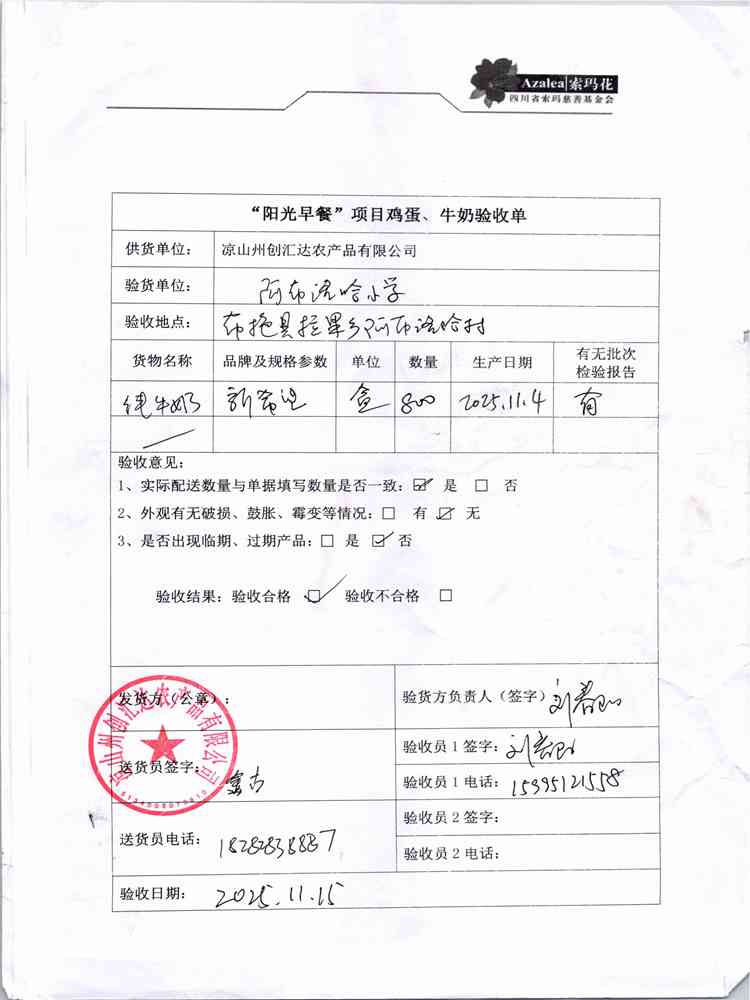 Azalea 索玛花
四川省索玛慈善基金会
“阳光早餐”项目鸡蛋、牛奶验收单
供货单位： 凉山州创汇达农产品有限公司
验货单位： 阿布洛哈小学
验收地点： 布拖县拉果乡阿布洛哈村
货物名称 品牌及规格参数 单位 数量 生产日期 有无批次检验报告
纯牛奶 新希望 盒 800 2025.11.4 有
验收意见：
1、实际配送数量与单据填写数量是否一致：☑ 是 □ 否
2、外观有无破损、鼓胀、霉变等情况：□ 有 ☑ 无
3、是否出现临期、过期产品：□ 是 ☑ 否
验收结果：验收合格 ☑ 验收不合格 □
发货方（公章）：
凉山州创汇达农产品有限公司
验货方负责人（签字）
送货员签字：
验收员1签字：
验收员1电话： 15995121558
送货员电话： 18282838887
验收员2签字：
验收员2电话：
验收日期： 2025.11.15